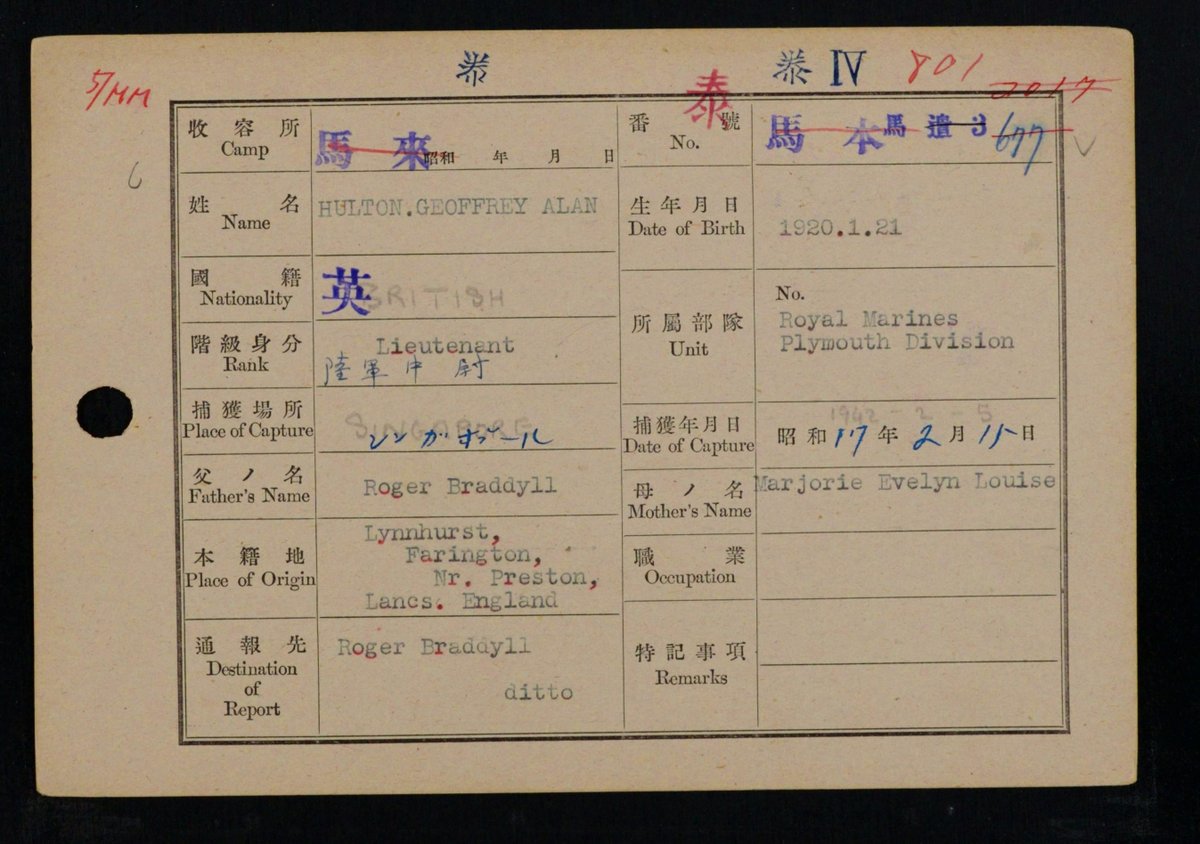 5/MM
泰
泰
泰 IV
801
2017
收容所
Camp
馬來
昭和 年 月 日
番號
No.
馬本馬遣3
677
姓名
Name
HULTON.GEOFFREY ALAN
生年月日
Date of Birth
1920.1.21
國籍
Nationality
英
BRITISH
所屬部隊
Unit
No.
Royal Marines
Plymouth Division
階級身分
Rank
Lieutenant
陸軍中尉
捕獲場所
Place of Capture
SINGAPORE
シンガポール
捕獲年月日
Date of Capture
1942 - 2 5
昭和17年2月15日
父ノ名
Father's Name
Roger Braddyll
母ノ名
Mother's Name
Marjorie Evelyn Louise
本籍地
Place of Origin
Lynnhurst,
Farington,
Nr. Preston,
Lancs. England
職業
Occupation
通報先
Destination
of
Report
Roger Braddyll
ditto
特記事項
Remarks